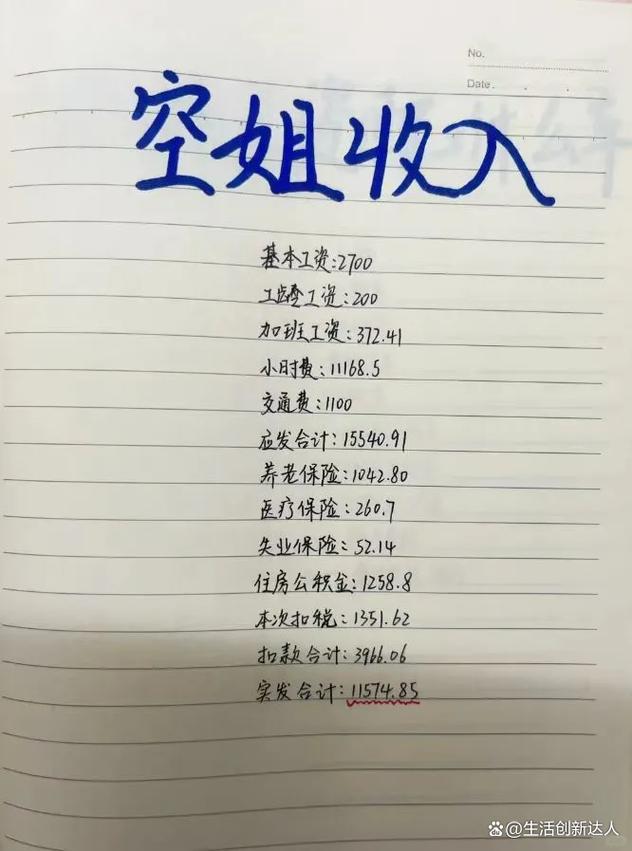 No.
Date . . .
空姐收入
基本工资:2700
工龄工资:200
加班工资:372.41
小时费:11168.5
交通费:1100
应发合计:15540.91
养老保险:1042.80
医疗保险:260.7
失业保险:52.14
住房公积金:1258.8
本次扣税:1351.62
扣款合计:3966.06
实发合计:11574.85
@生活创新达人